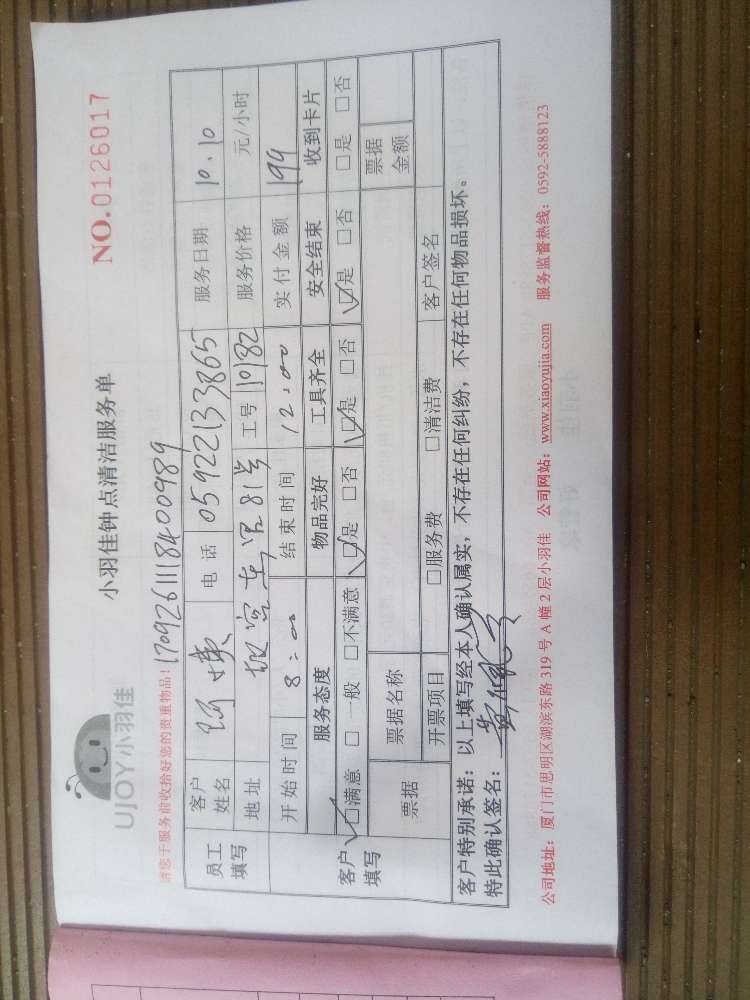 UJOY小羽佳
小羽佳钟点清洁服务单
NO.0126017
请您于服务前收拾好您的贵重物品! 1709261118400989
员工填写 客户姓名 电 话 05922133865 服务日期 10.10
地址 81号 工号 10182 服务价格 元/小时
开始时间 8:00 结束时间 12:00 实付金额 199
客户填写 服务态度 物品完好 工具齐全 安全结束 收到卡片
☑满意 □一般 □不满意 ☑是 □否 ☑是 □否 ☑是 □否 □是 □否
票据 票据名称 票据金额
开票项目 □服务费 □清洁费 客户签名
客户特别承诺:以上填写经本人确认属实,不存在任何纠纷,不存在任何物品损坏。
特此确认签名:
公司地址:厦门市思明区湖滨东路 319 号 A 幢 2 层小羽佳 公司网站:www.xiaoyujia.com 服务监督热线:0592-5888123